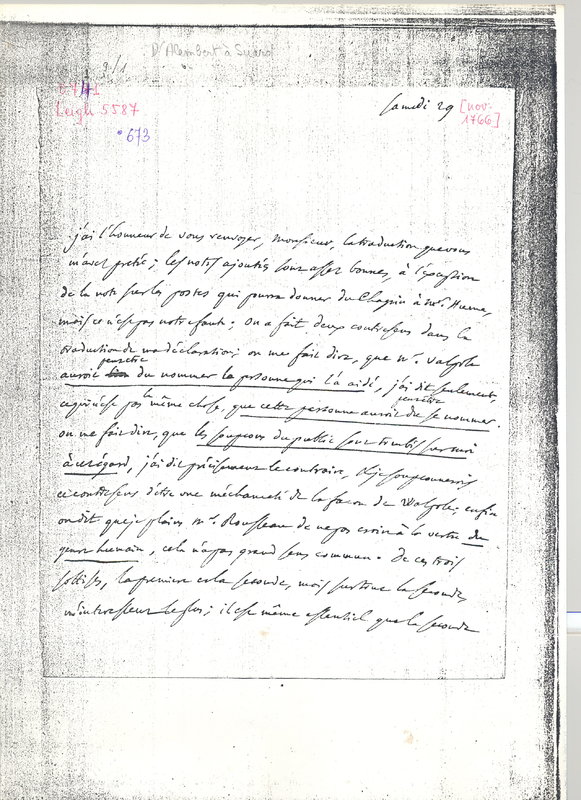 D'Alembert à Suard
Leigh 5587
673
samedi 29 [nov. 1766]
j'ai l'honneur de vous renvoyer, monsieur, la traduction que vous
m'avez pretée; les notes ajoutées sont assez bonnes, à l'exception
de la note sur les postes qui pourra donner du chagrin à mr. Hume,
mais ce n'est pas notre faute. on a fait deux contresens dans la
traduction de ma déclaration; on me fait dire, que mr. Walpole
auroit peutetre du nommer la personne qui l'a aidé, j'ai dit seulement,
ce qui n'est pas la même chose, que cette personne auroit du peutetre se nommer.
on me fait dire, que les soupcons du public sont tombés sur moi
à cet égard, j'ai dit précisement le contraire, & je soupconnerois
ce contresens d'être une méchanceté de la façon de Walpole; enfin
on dit que je plains mr. Rousseau de ne pas croire à la vertu du
genre humain, cela n'a pas grand sens commun. De ces trois
sottises, la premiere et la seconde, mais surtout la seconde,
m'interessent le plus; il est même essentiel que la seconde